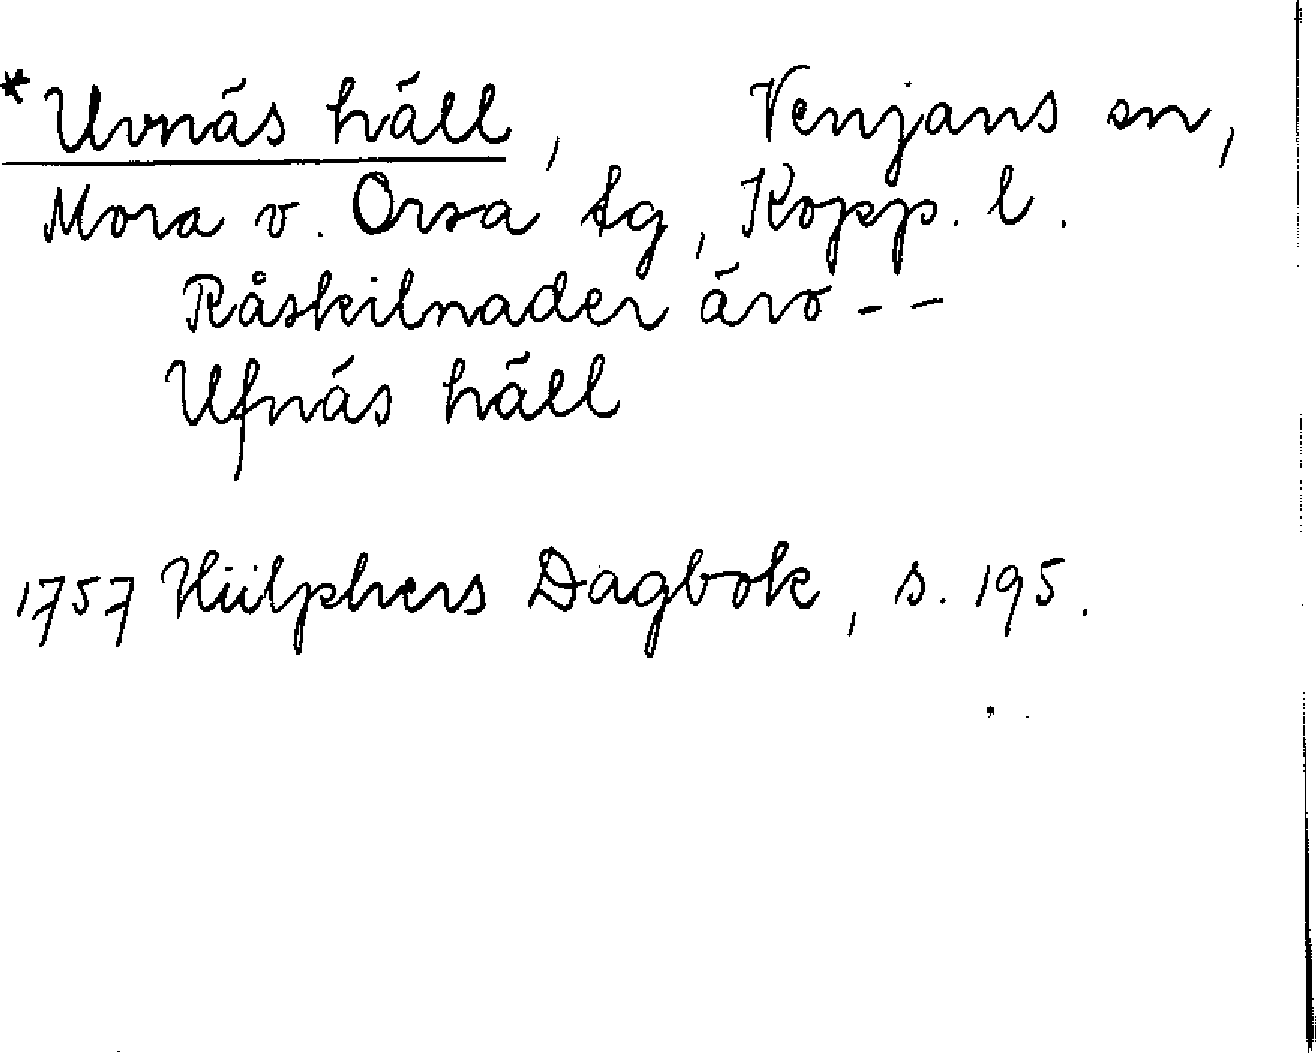 *Uvnäs häll, Venjans sn,
Mora o. Orsa tg, Kopp. l.
Råskilnader äro - -
Ufnäs häll
1757 Hülphers Dagbok, s. 195.